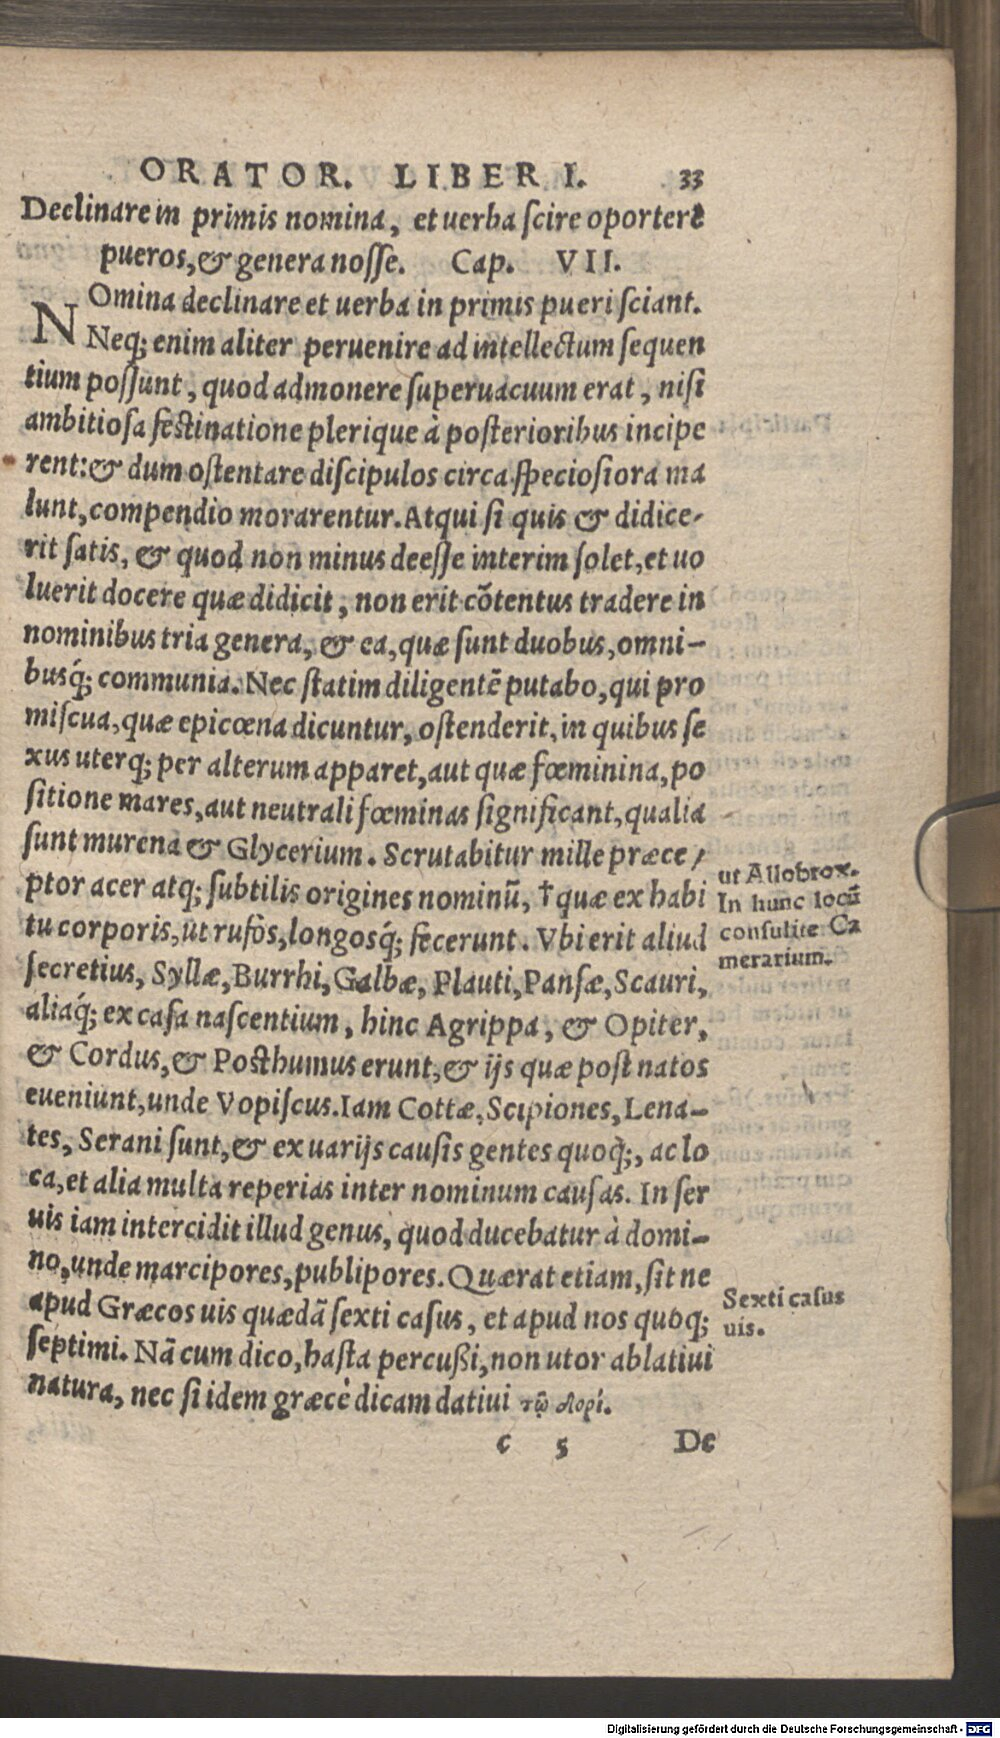 ORATOR. LIBER I. 33
Declinare in primis nomina, et uerba scire oportere
pueros, & genera nosse. Cap. VII.
NOmina declinare et uerba in primis pueri sciant.
Neq; enim aliter peruenire ad intellectum sequen
tium possunt, quod admonere superuacuum erat, nisi
ambitiosa festinatione plerique à posterioribus incipe
rent: & dum ostentare discipulos circa speciosiora ma
lunt, compendio morarentur. Atqui si quis & didice-
rit satis, & quod non minus deesse interim solet, et uo
luerit docere quæ didicit, non erit cõtentus tradere in
nominibus tria genera, & ea, quæ sunt duobus, omni-
busq́; communia. Nec statim diligentẽ putabo, qui pro
miscua, quæ epicœna dicuntur, ostenderit, in quibus se
xus uterq; per alterum apparet, aut quæ fœminina, po
sitione mares, aut neutrali fœminas significant, qualia
sunt murena & Glycerium. Scrutabitur mille præce-
ptor acer atq; subtilis origines nominũ, † quæ ex habi
tu corporis, ut rufos, longosq́; fecerunt. Vbi erit aliud
secretius, Syllæ, Burrhi, Galbæ, Plauti, Pansæ, Scauri,
aliaq́; ex casa nascentium, hinc Agrippa, & Opiter,
& Cordus, & Posthumus erunt, & ijs quæ post natos
eueniunt, unde Vopiscus. Iam Cottæ, Scipiones, Lena-
tes, Serani sunt, & ex uarijs causis gentes quoq́;, ac lo
ca, et alia multa reperias inter nominum causas. In ser
uis iam intercidit illud genus, quod ducebatur à domi-
no, unde marcipores, publipores. Quærat etiam, sit ne
apud Græcos uis quædã sexti casus, et apud nos quoq;
septimi. Nã cum dico, hasta percußi, non utor ablatiui
natura, nec si idem græcè dicam datiui τῷ δορί.
c 5 De
ut Allobrox.
In hunc locũ
consulite Ca
merarium.
Sexti casus
uis.
Digitalisierung gefördert durch die Deutsche Forschungsgemeinschaft - DFG